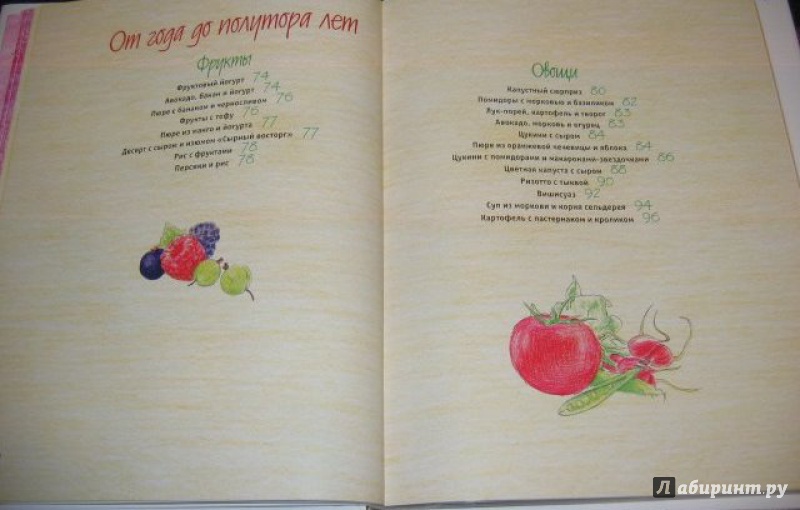 От года до полутора лет
Фрукты
Фруктовый йогурт 74
Авокадо, банан и йогурт 74
Пюре с бананом и черносливом 76
Фрукты с тофу 76
Пюре из манго и йогурта 77
Десерт с сыром и изюмом «Сырный восторг» 77
Рис с фруктами 78
Персики и рис 78
Овощи
Капустный сюрприз 80
Помидоры с морковью и базиликом 82
Лук-порей, картофель и творог 83
Авокадо, морковь и огурец 83
Цукини с сыром 84
Пюре из оранжевой чечевицы и яблока 84
Цукини с помидорами и макаронами-звездочками 86
Цветная капуста с сыром 88
Ризотто с тыквой 90
Вишисуаз 92
Суп из моркови и корня сельдерея 94
Картофель с пастернаком и кроликом 96
Лабиринт.ру